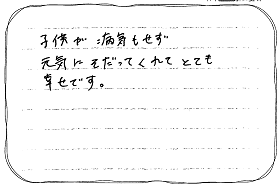 子供が病気もせず
元気にそだってくれてとても
幸せです。